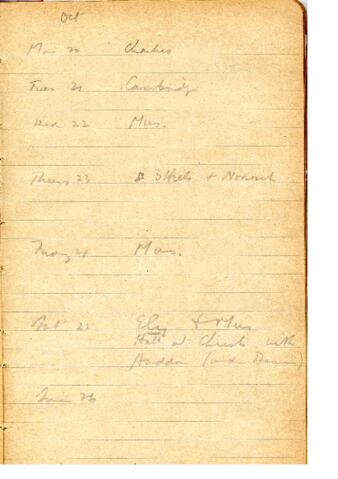 Oct
Mon 20 Charles
Tues 21 Cambridge
Wed 22 Mus.
Thurs 23 & Norwich
Friday 24 Mus.
Sat 25 Ely + Mus
Hall at Christs with
Haddon (and
Sun 26